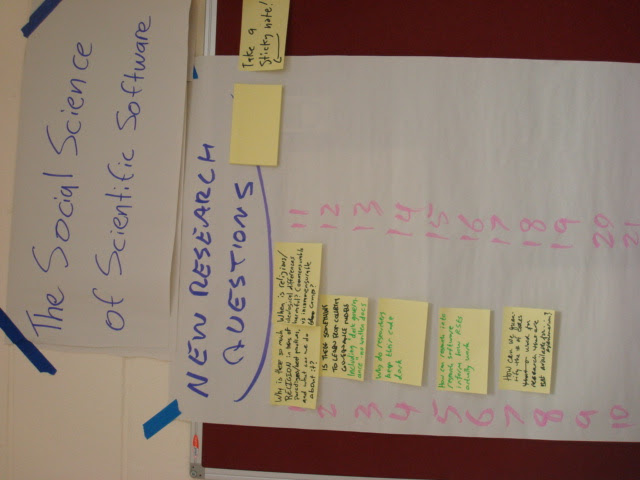 The Social Science
of Scientific Software
NEW RESEARCH
QUESTIONS
Take a
sticky note!
Why is there so much
RELIGION in terms of
paradigms/best practices,
and what can we do
about it?
When is religious/
ideological differences
harmful? Commensurable
vs incommensurable
camps?
IS THERE SOMETHING
TO LEARN FROM COUNTRY
GOVERNANCE MODELS
Including "dark govern
ance" no written docs
Why do researchers
keep their code
dark
How can research into
research software
inform how RSEs
actually work
How can we quan
tify the # of
used for
research that are
not available for
1
2
3
4
5
6
7
8
9
10
11
12
13
14
15
16
17
18
19
20
21